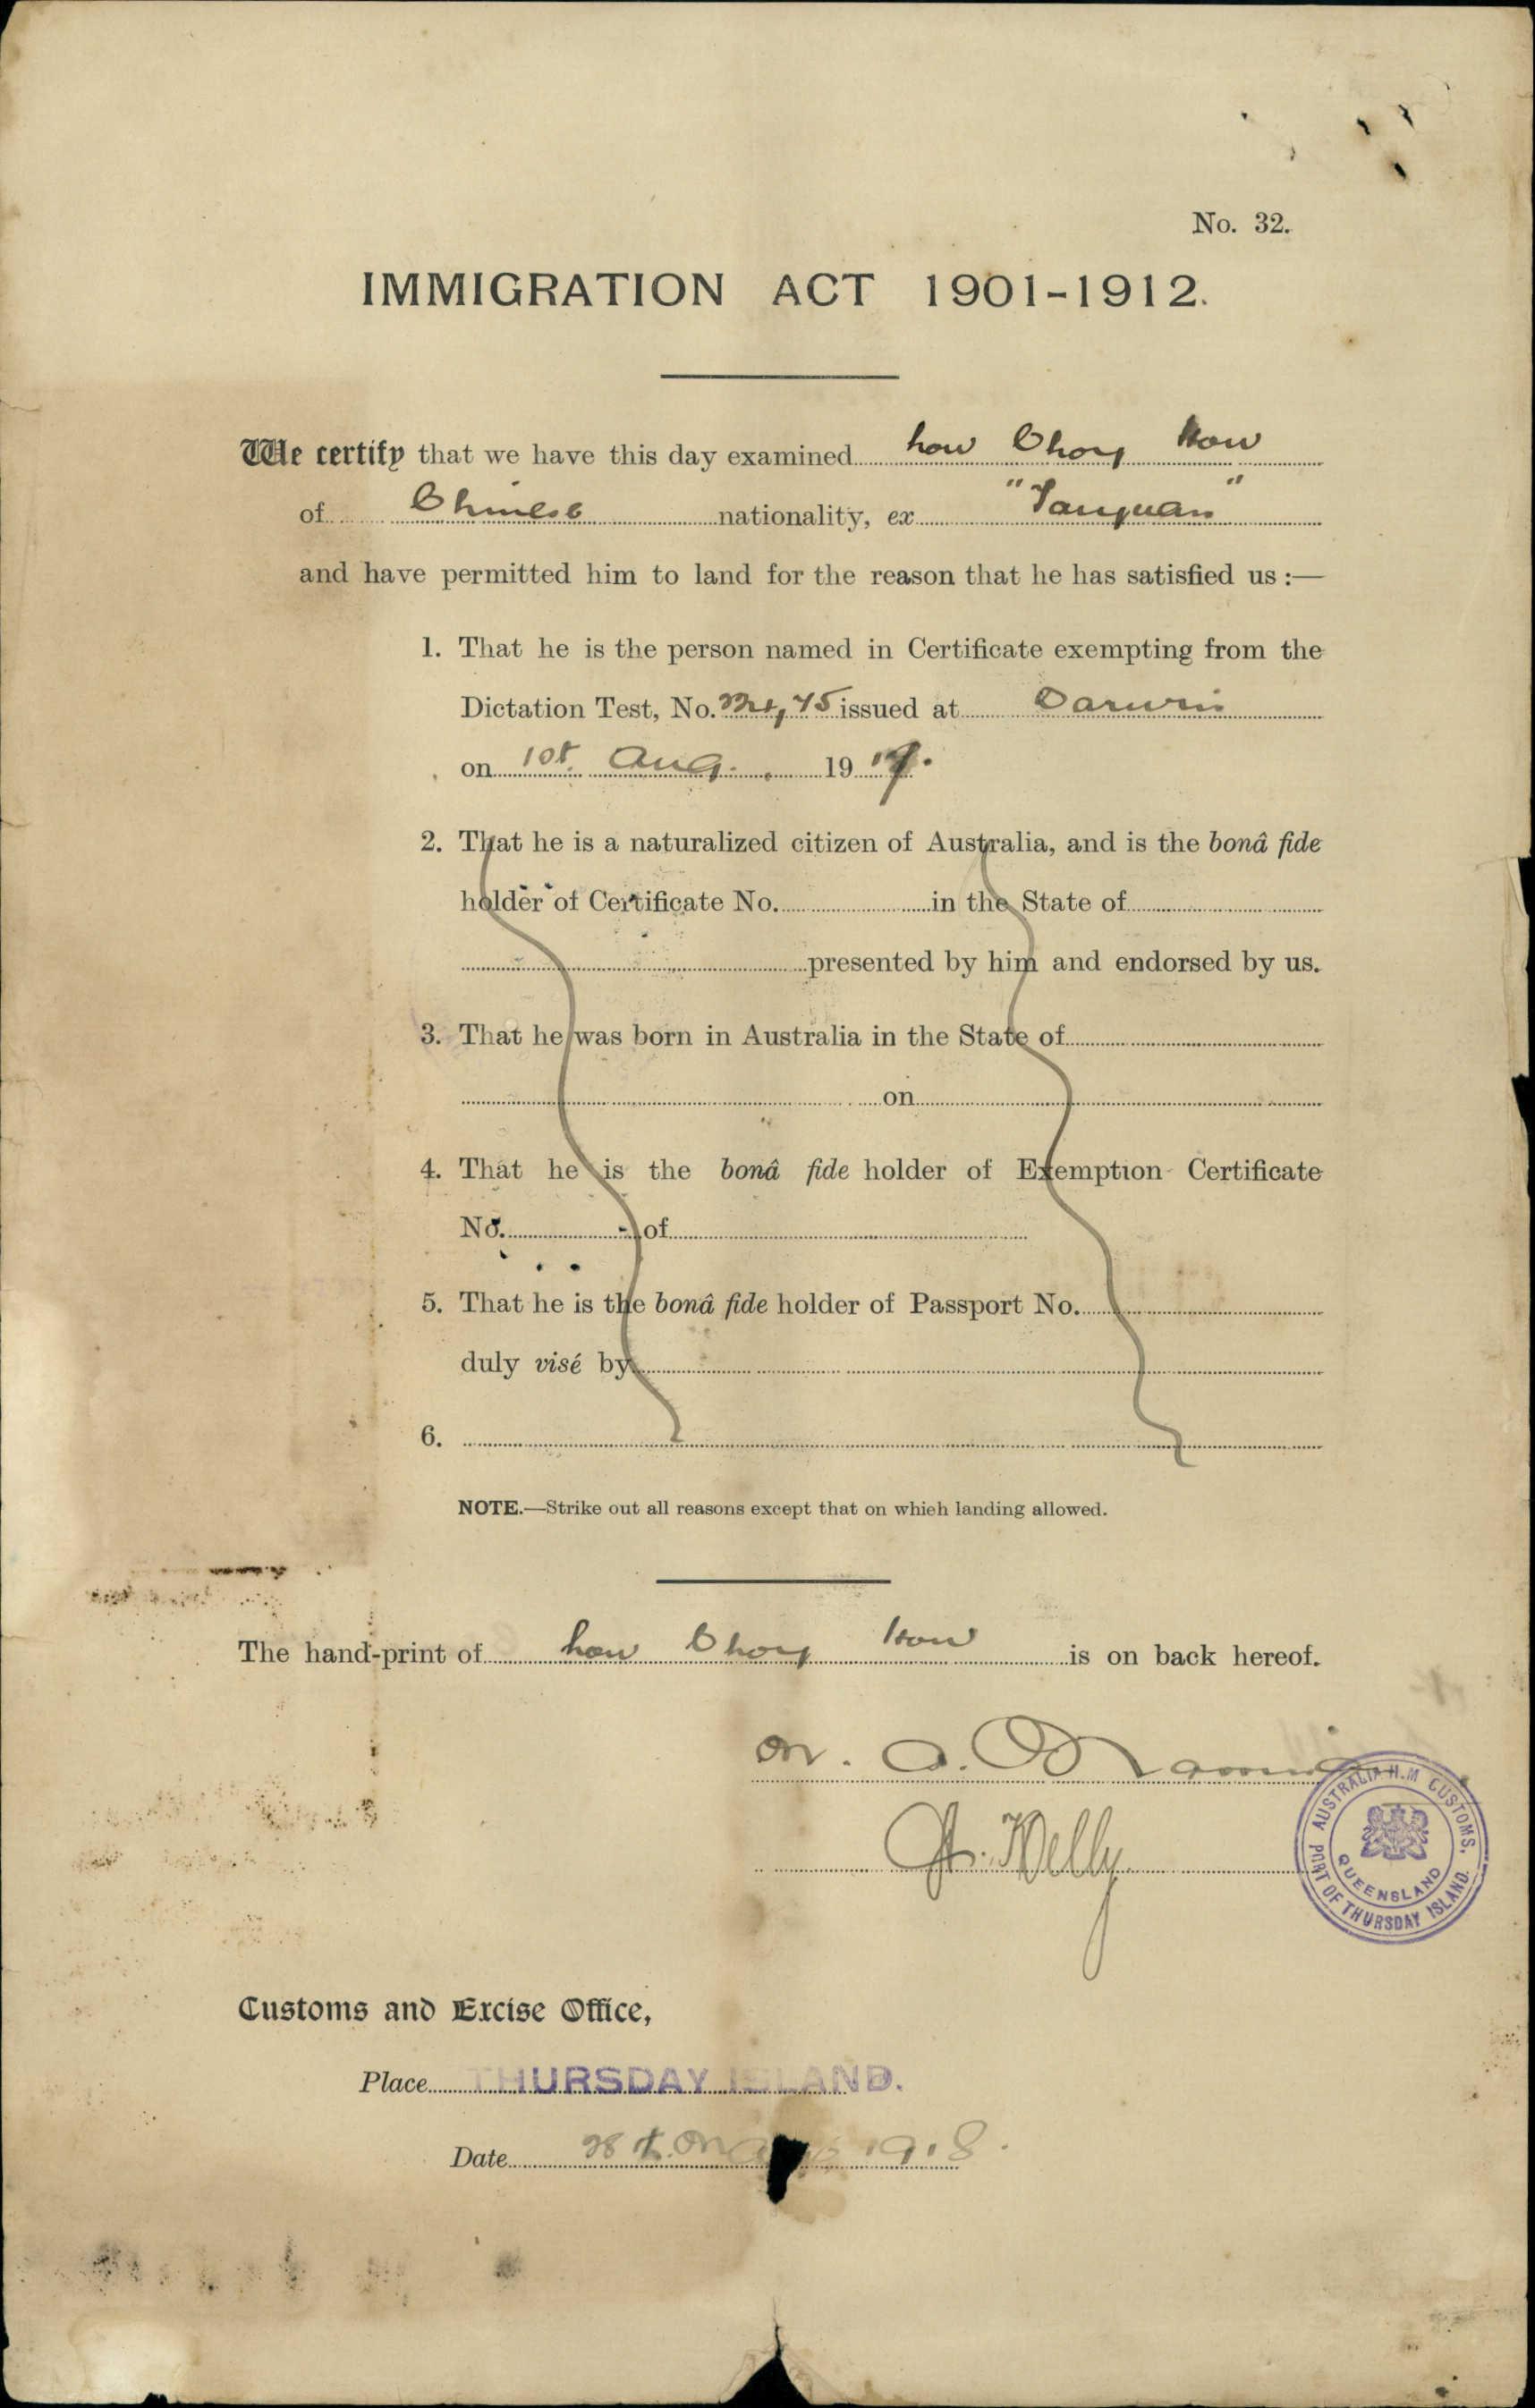 No. 32.
IMMIGRATION ACT 1901-1912.
We certify that we have this day examined how Choy How
of Chinese nationality, ex "Taiyuan"
and have permitted him to land for the reason that he has satisfied us :—
1. That he is the person named in Certificate exempting from the
Dictation Test, No. 45 issued at Darwin
on 1st. Aug. 19
2. That he is a naturalized citizen of Australia, and is the bonâ fide
holder of Certificate No. in the State of
presented by him and endorsed by us.
3. That he was born in Australia in the State of
on
4. That he is the bonâ fide holder of Exemption Certificate
No. of
5. That he is the bonâ fide holder of Passport No.
duly visé by
6.
NOTE.—Strike out all reasons except that on which landing allowed.
The hand-print of how Choy How is on back hereof.
M. A. O
Kelly
AUSTRALIA H.M CUSTOMS,
QUEENSLAND
PORT OF THURSDAY ISLAND.
Customs and Excise Office,
Place THURSDAY ISLAND.
Date 28th 1918.